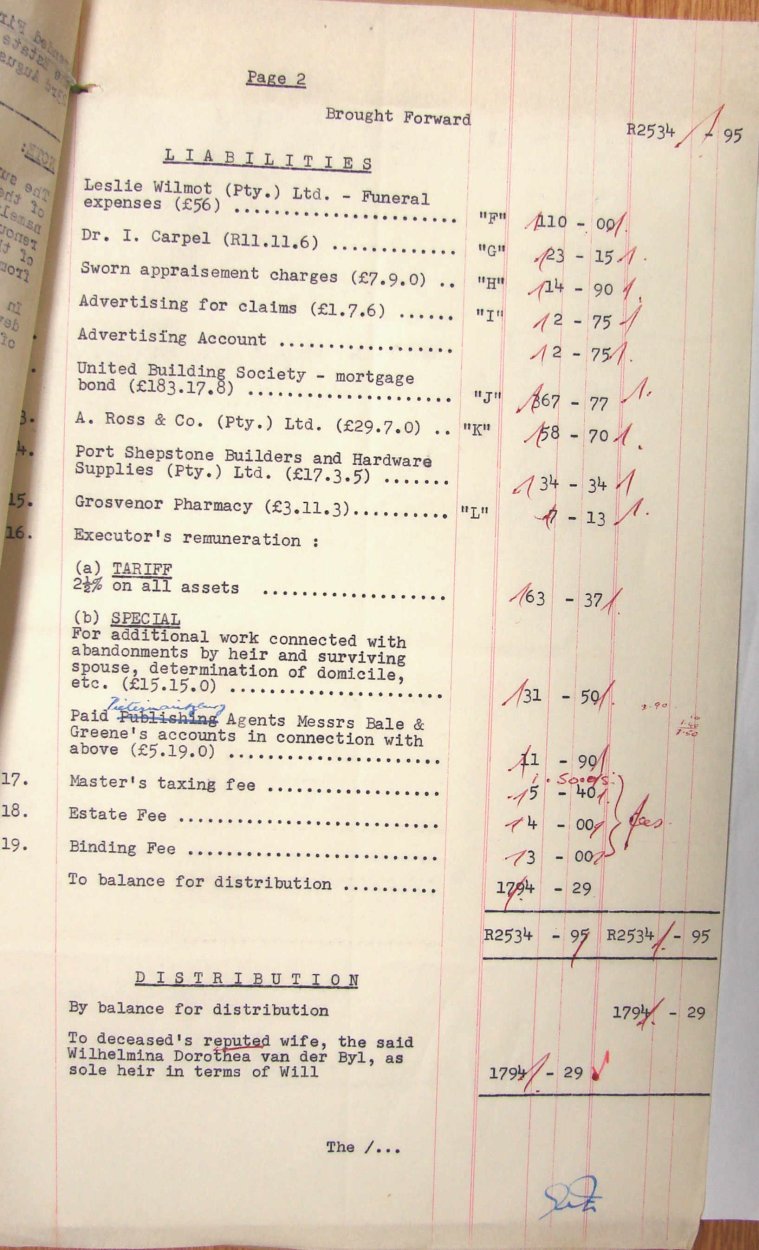 Page 2
Brought Forward R2534 - 95
LIABILITIES
Leslie Wilmot (Pty.) Ltd. - Funeral
expenses (£56) ........................ "F" 110 - 00
Dr. I. Carpel (R11.11.6) ............. "G" 23 - 15
Sworn appraisement charges (£7.9.0) .. "H" 14 - 90
Advertising for claims (£1.7.6) ...... "I" 2 - 75
Advertising Account .................. 2 - 75
United Building Society - mortgage
bond (£183.17.8) ...................... "J" 367 - 77
A. Ross & Co. (Pty.) Ltd. (£29.7.0) .. "K" 58 - 70
Port Shepstone Builders and Hardware
Supplies (Pty.) Ltd. (£17.3.5) ....... 34 - 34
15. Grosvenor Pharmacy (£3.11.3).......... "L" 7 - 13
16. Executor's remuneration :
(a) TARIFF
2½% on all assets ................... 63 - 37
(b) SPECIAL
For additional work connected with
abandonments by heir and surviving
spouse, determination of domicile,
etc. (£15.15.0) ....................... 31 - 50
Pietermaritzburg
Paid Publishing Agents Messrs Bale &
Greene's accounts in connection with
above (£5.19.0) ....................... 11 - 90
17. Master's taxing fee .................. 5 - 40
18. Estate Fee ............................ 4 - 00 fees
19. Binding Fee ........................... 3 - 00
To balance for distribution .......... 1794 - 29
R2534 - 95 R2534 - 95
DISTRIBUTION
By balance for distribution 1794 - 29
To deceased's reputed wife, the said
Wilhelmina Dorothea van der Byl, as
sole heir in terms of Will 1794 - 29
The /...